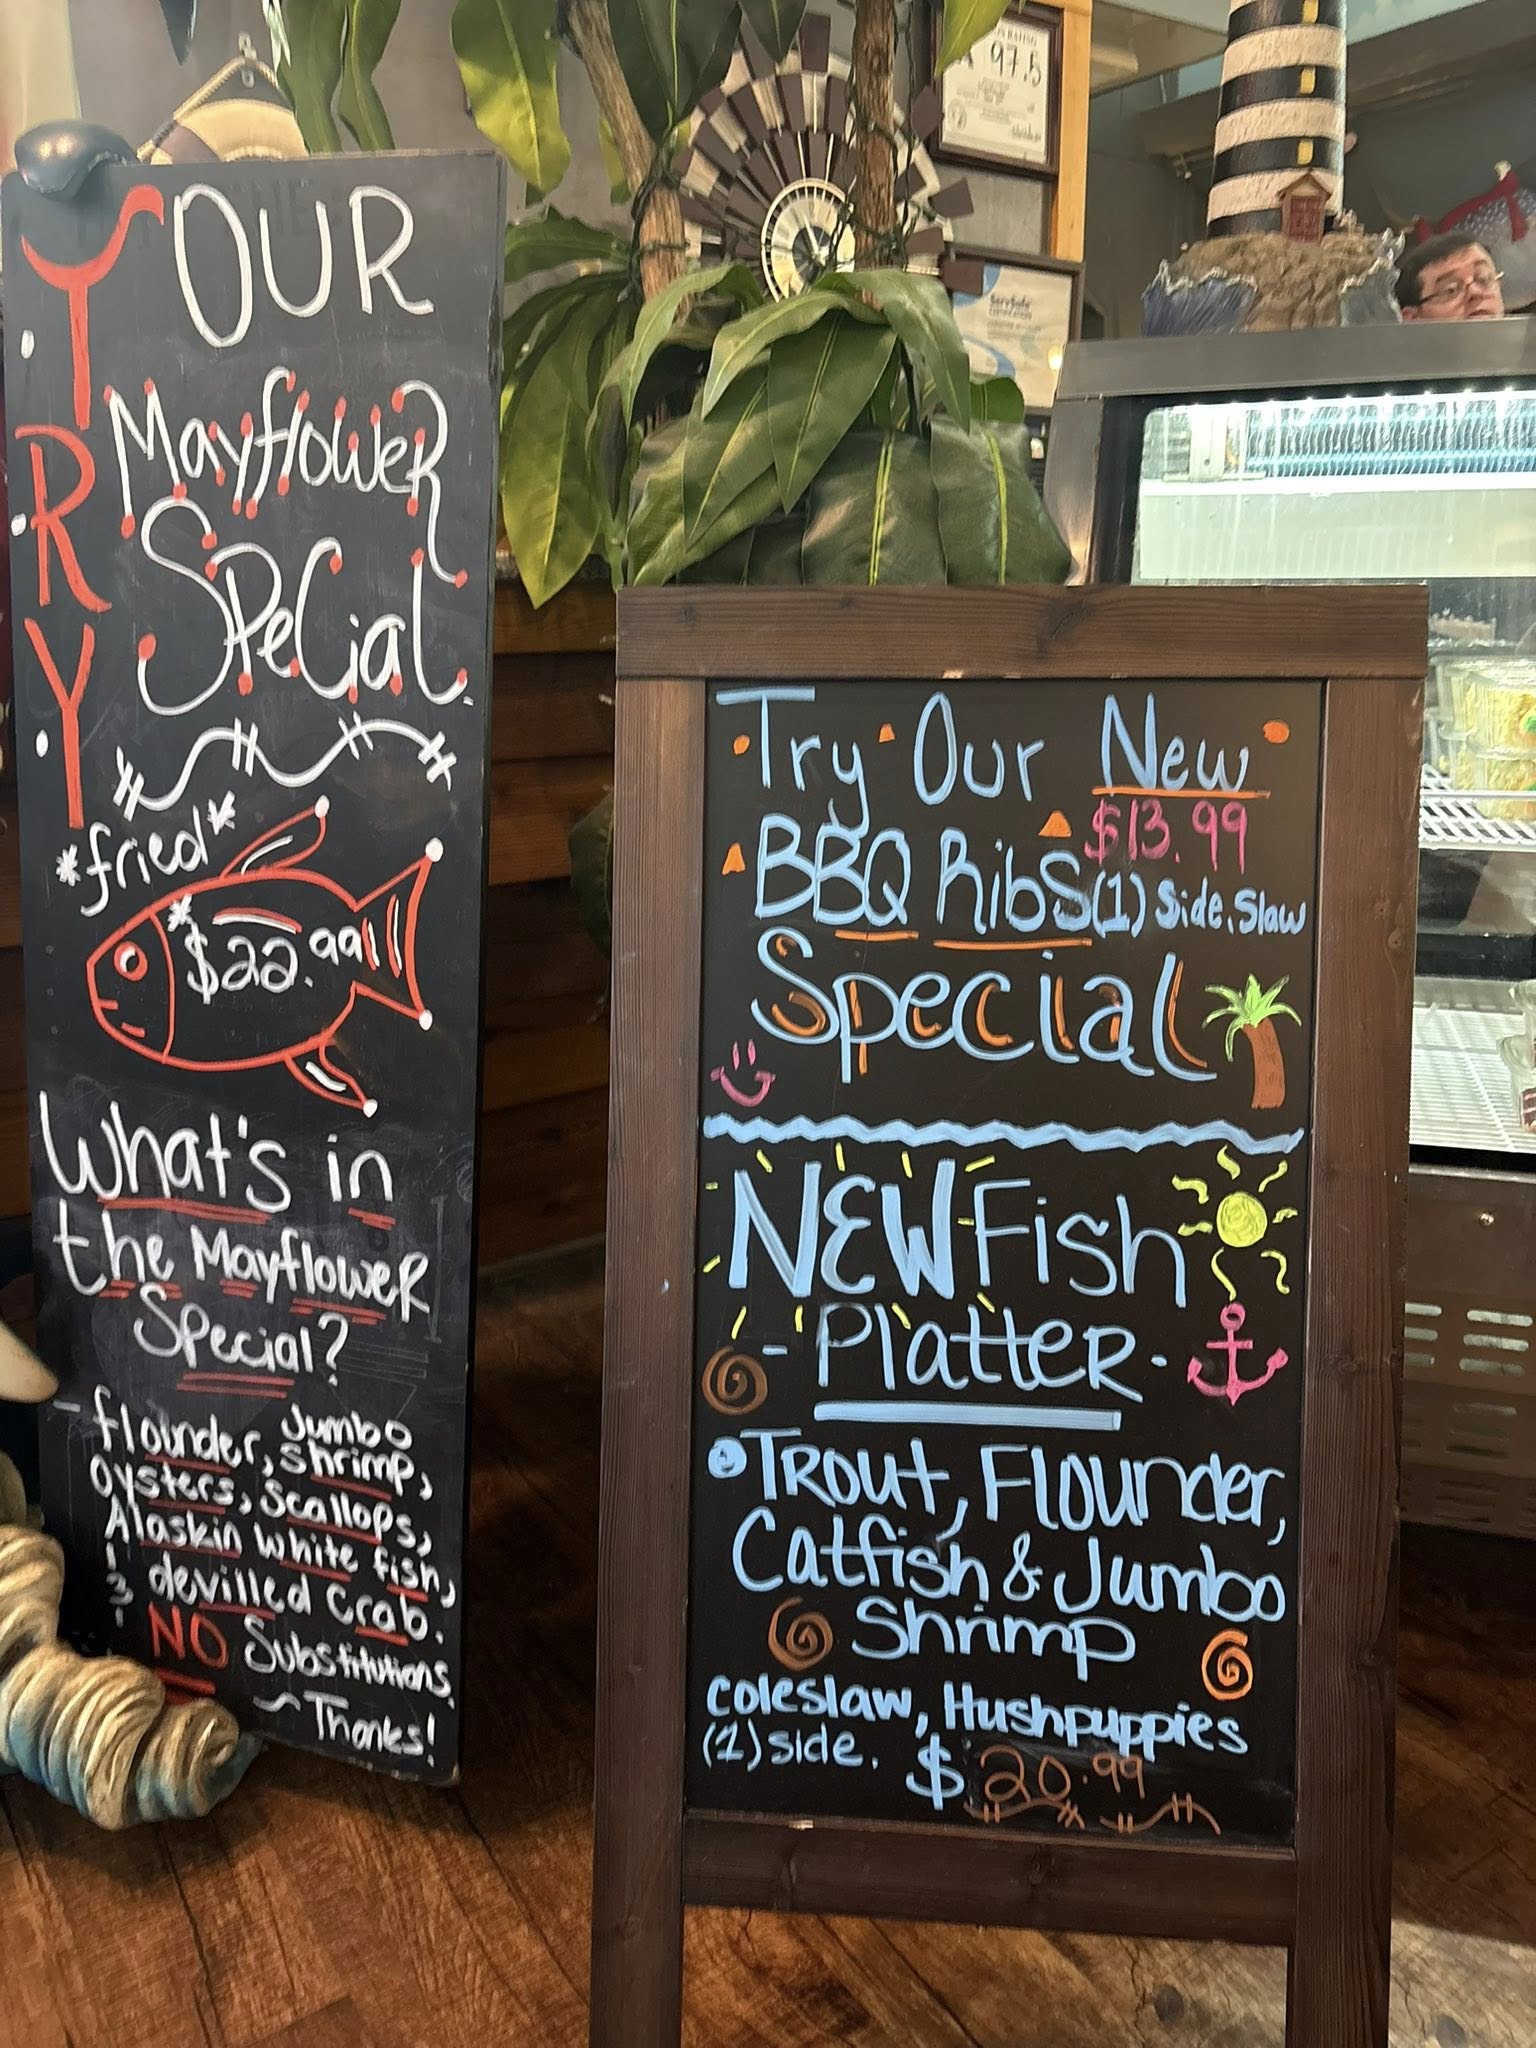 TRY OUR
Mayflower
Special
*fried*
*$22.99
What's in
the Mayflower
Special?
- flounder, Jumbo
shrimp,
Oysters, Scallops,
Alaskin White fish,
devilled Crab.
NO Substitutions.
~Thanks!
97.5
ServSafe
CERTIFICATION
Try Our New
$13.99
BBQ Ribs (1) Side, Slaw
Special
NEW Fish
- Platter -
Trout, Flounder,
Catfish & Jumbo
Shrimp
Coleslaw, Hushpuppies
(1) side. $20.99